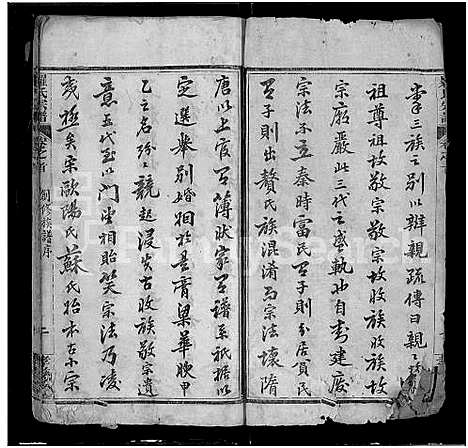 掌三族之别以辨親疏傳曰親〻故
祖尊祖故敬宗敬宗故收族收族故
宗廟嚴此三代之盛軌也自封建廢
宗法不立秦時富民有子則分居貧民
有子則出贅氏族混淆而宗法壞隋
唐以上官有薄狀家有譜系祇据以
定選舉别婚姻於是膏梁華腴甲
乙之名紛〻競起浸失古收族敬宗遺
意五代至以門望相貽笑宗法乃凌
夷極矣宋歐陽氏蘇氏始本古小宗
氏宗譜
卷之首
創修族譜序
二